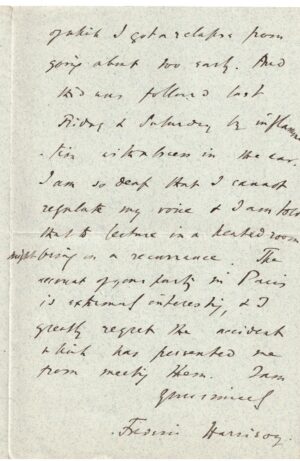 of which I got a relapse from
going about too early. And
this was followed last
Friday & Saturday by inflamma
-tion with abscess in the ear.
I am so deaf that I cannot
regulate my voice & I am told
that to lecture in a heated room
might bring on a recurrence. The
account of your party in Paris
is extremely interesting, & I
greatly regret the accident
which has prevented me
from meeting them. I am
yours sincerely
Frederic Harrison.